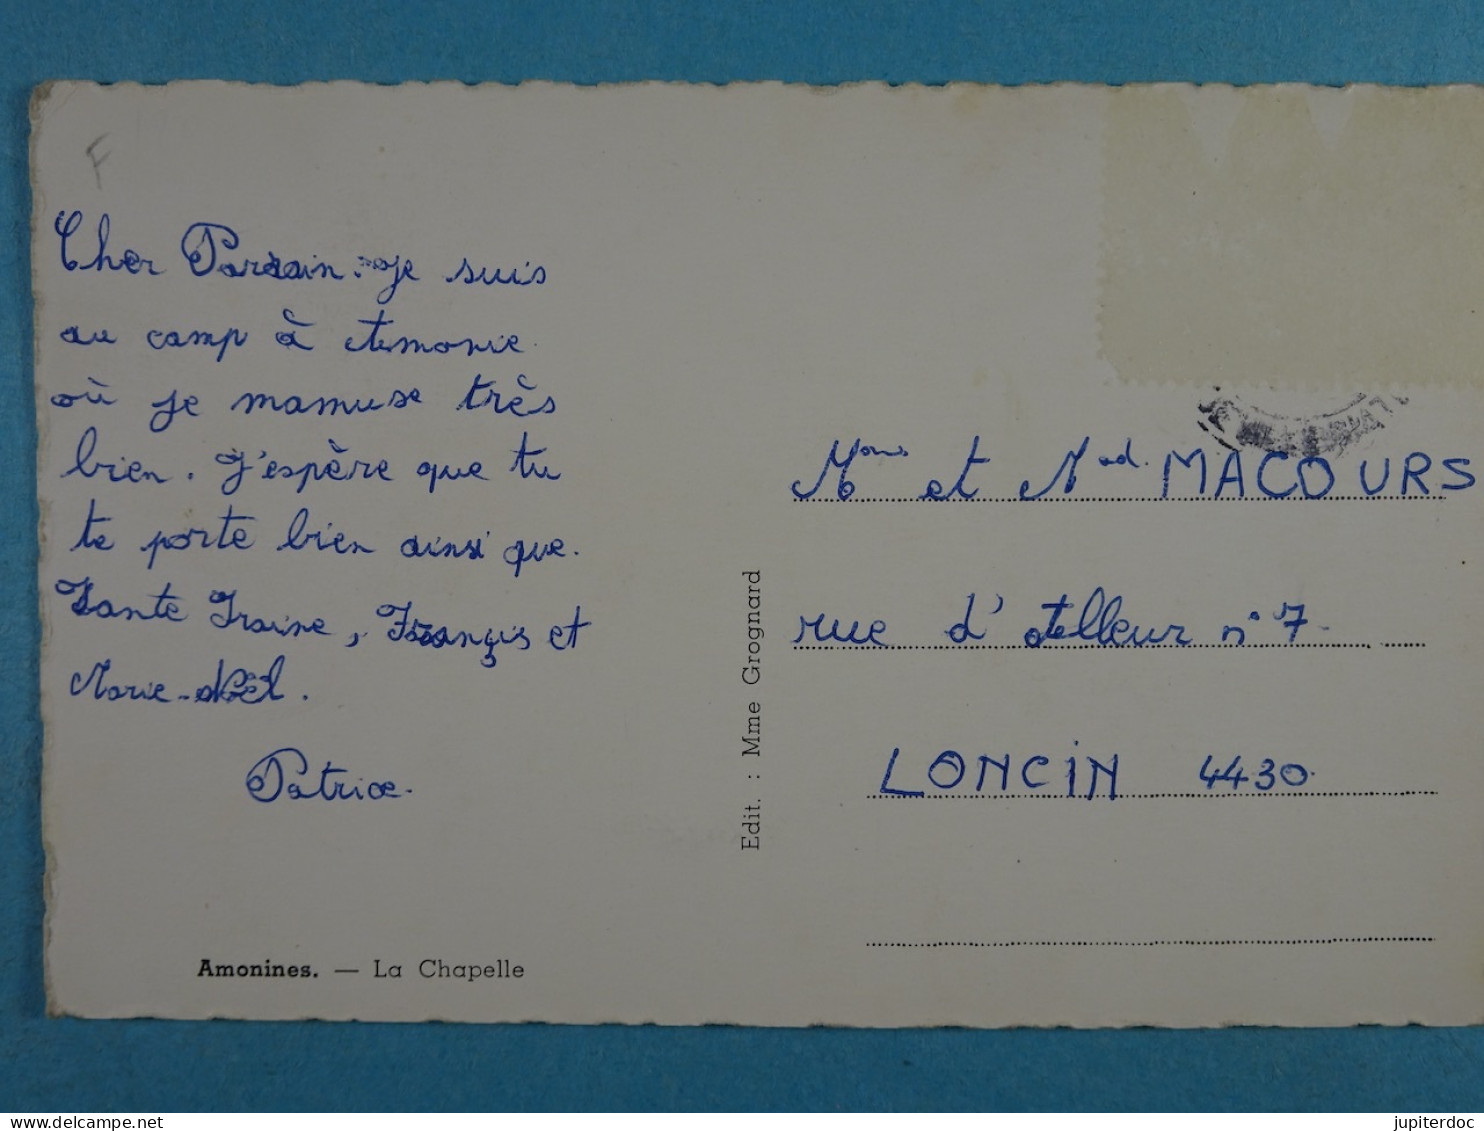 F
Cher Parrain. Je suis
au camp à Amonie
où je mamuse très
bien. J'espère que tu
te porte bien ainsi que.
Tante Iraine, Françis et
Marie-Noël.
Patrice.
Amonines. — La Chapelle
Edit. : Mme Grognard
Mons et Mad. MACOURS
rue d'Alleur n° 7
LONCIN 4430
jupiterdoc
www.delcampe.net